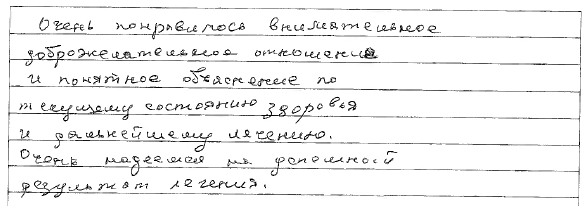 Очень понравилось внимательное
доброжелательное отношение
и понятное объяснение по
текущему состоянию здоровья
и дальнейшему лечению.
Очень надеемся на успешный
результат лечения.